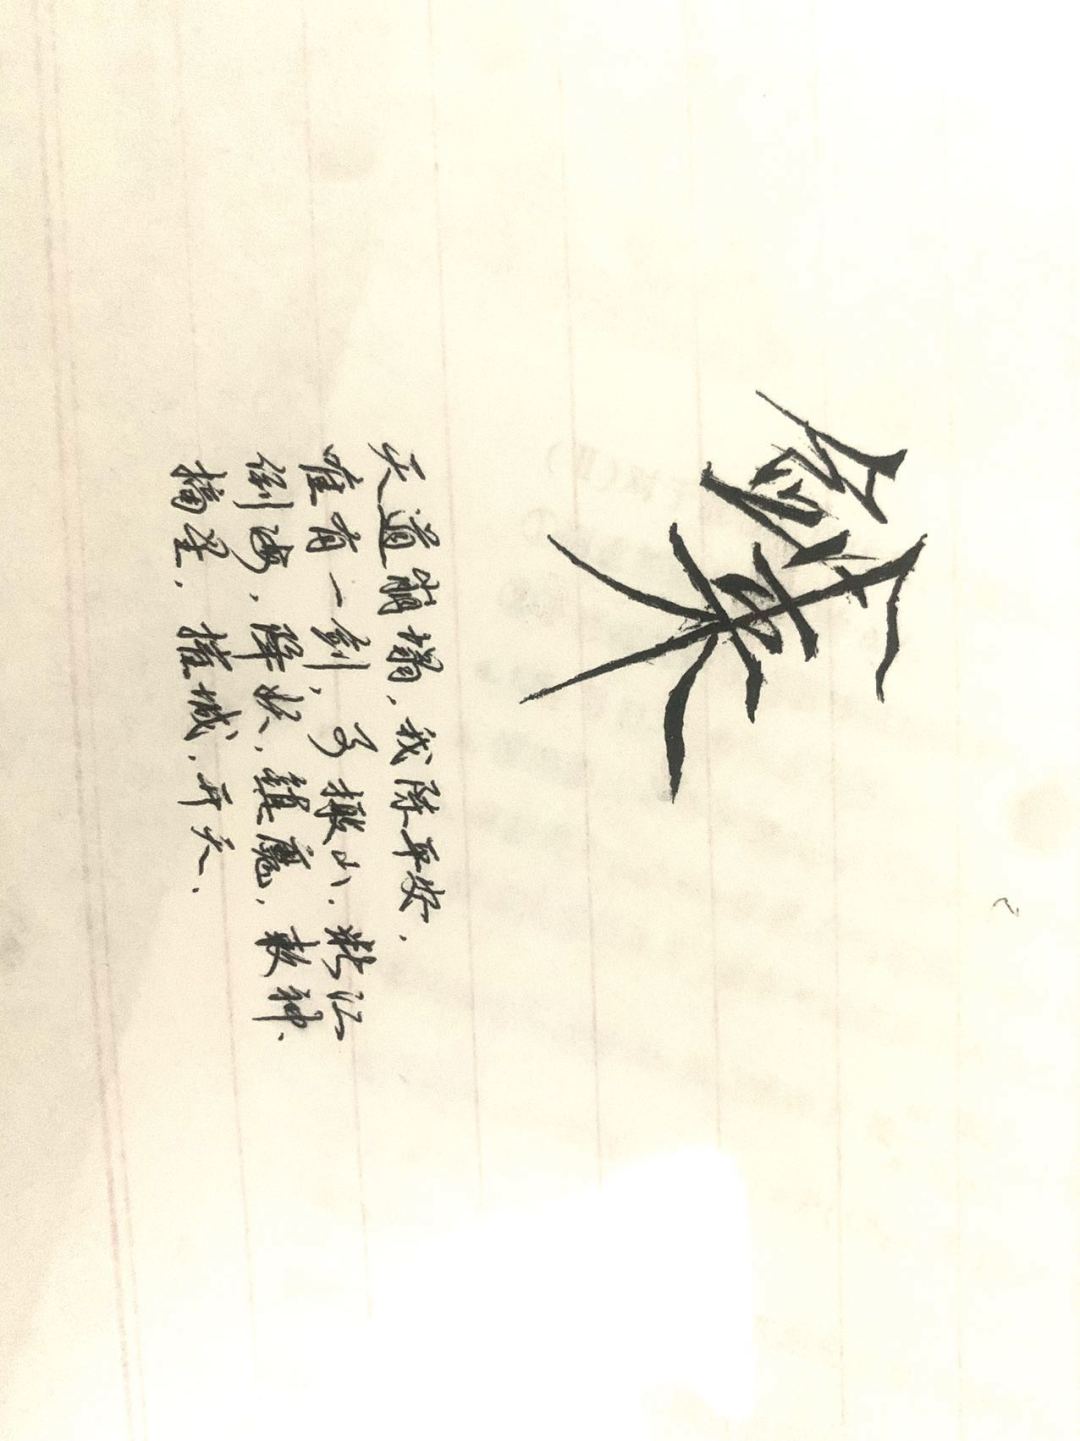 剑来
天道崩塌，我陈平安，
唯有一剑，可搬山，断江
倒海，降妖，镇魔，敕神，
摘星，摧城，开天。